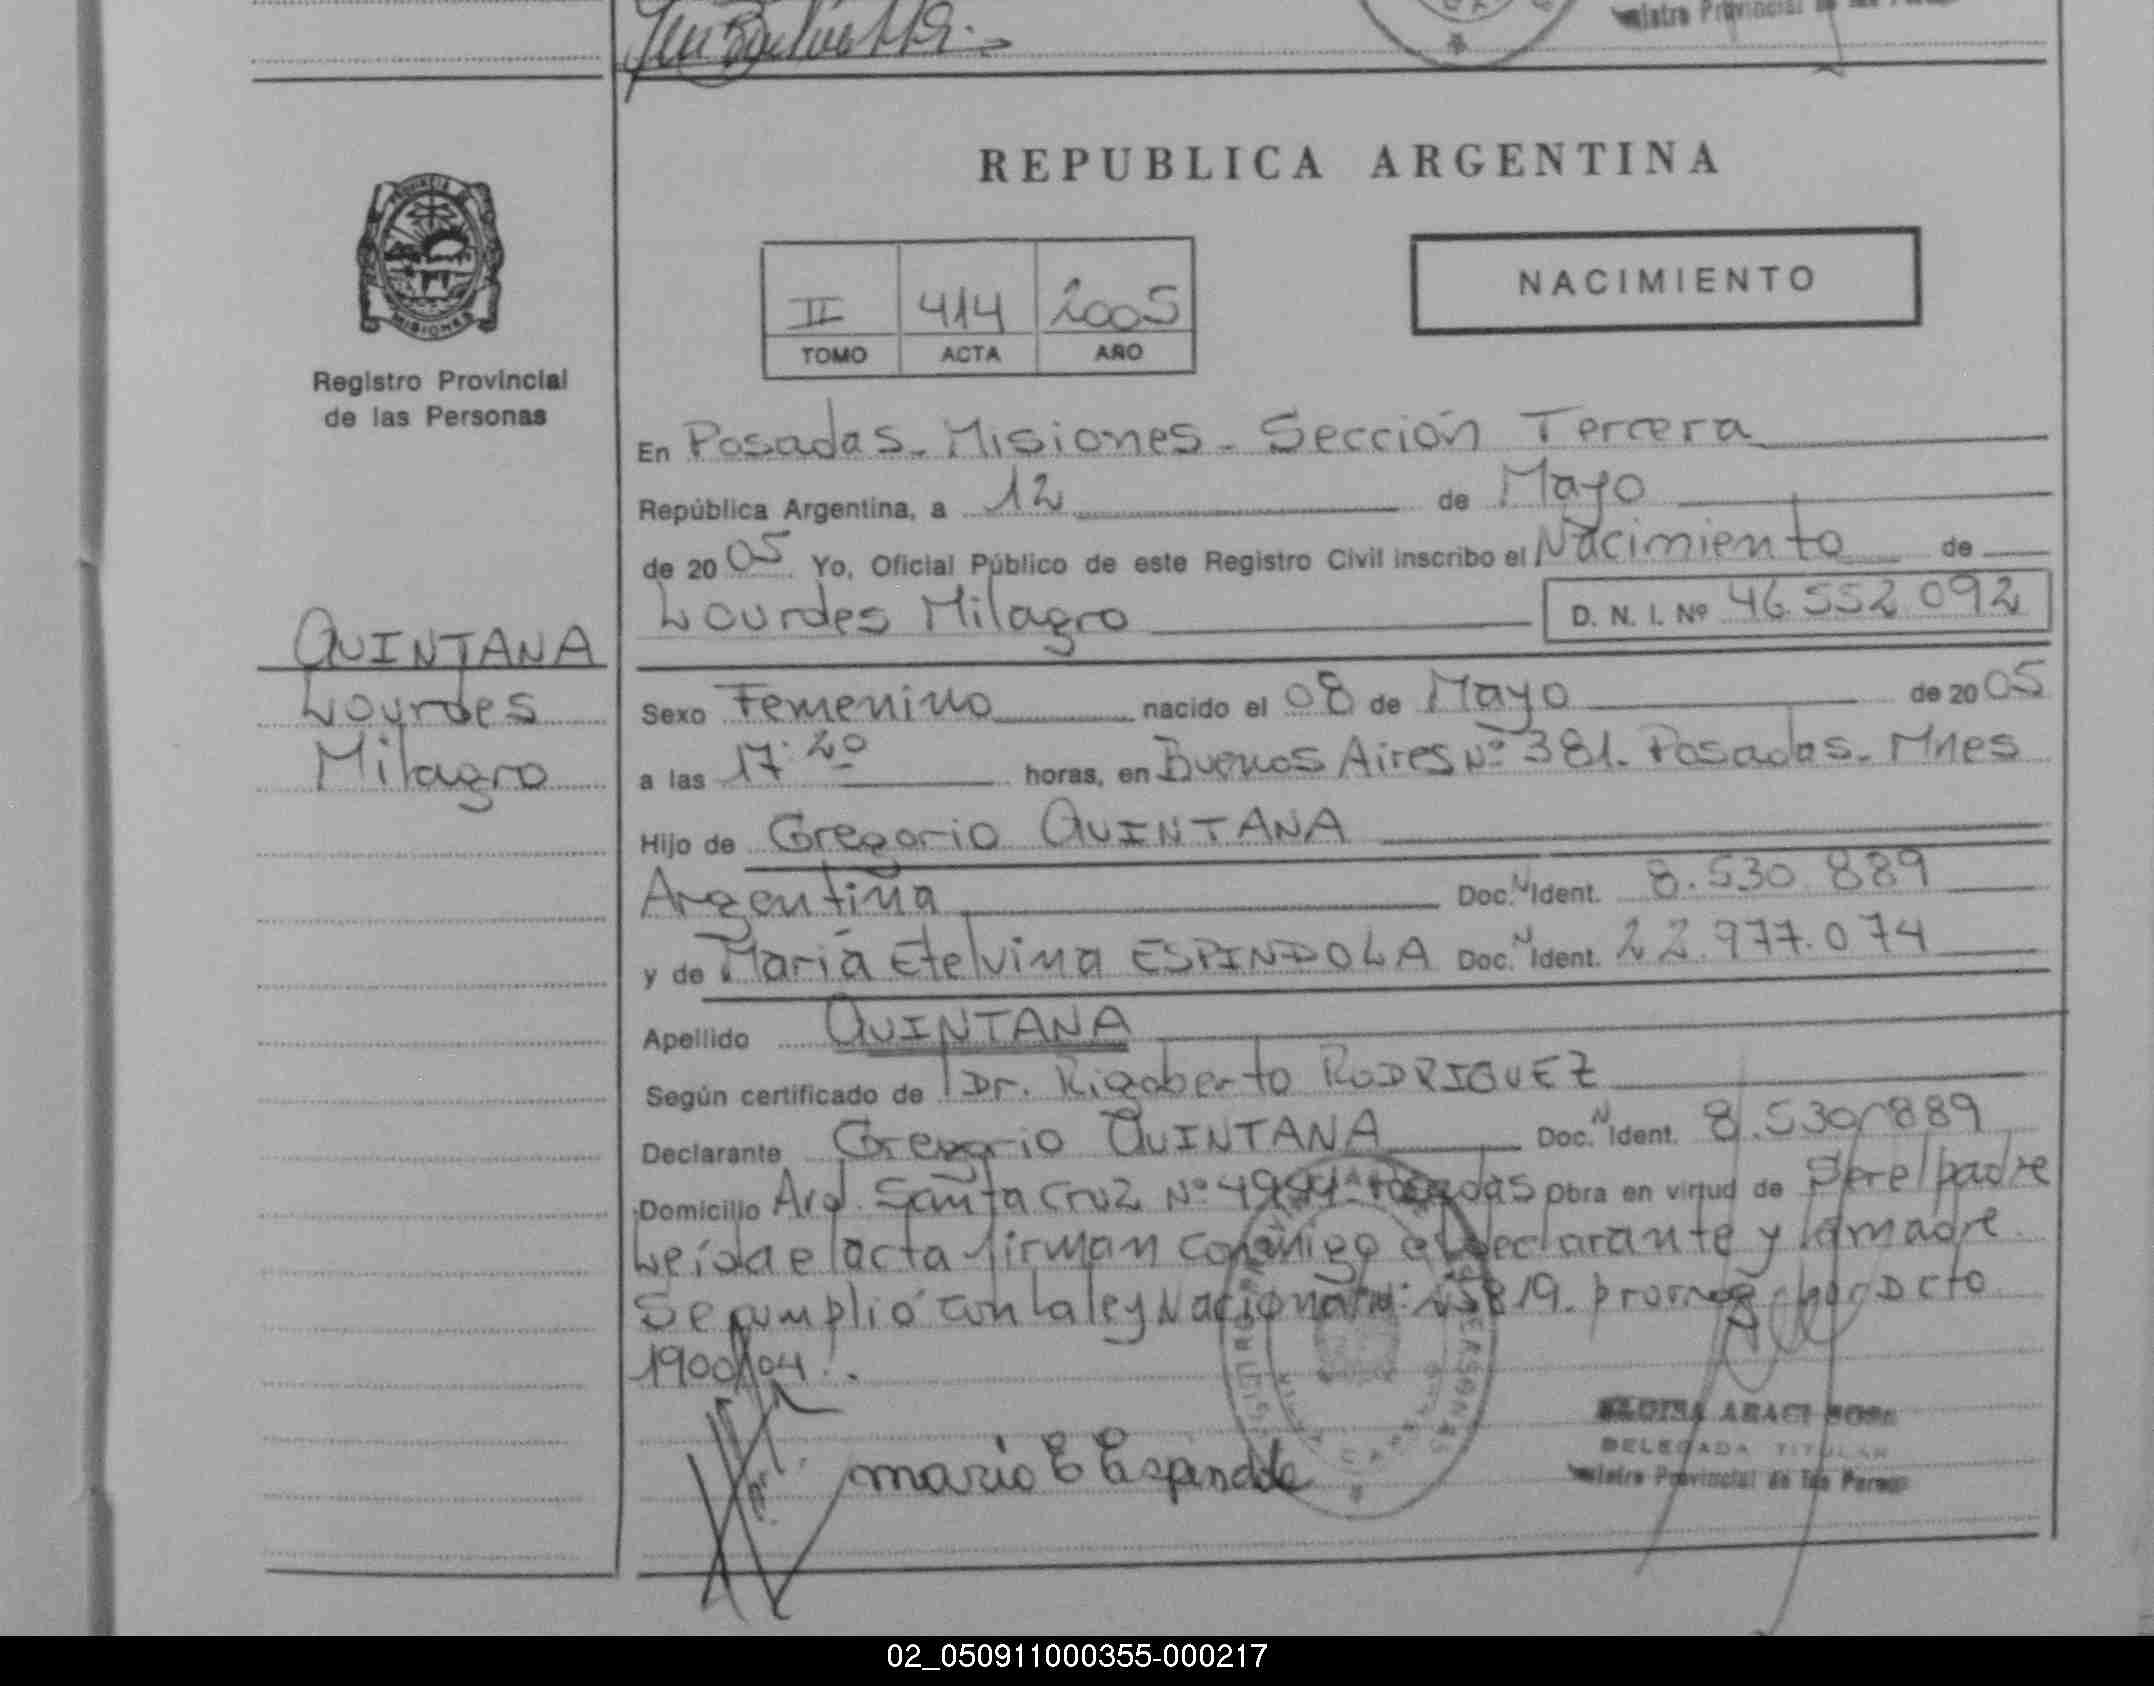 REPUBLICA ARGENTINA
NACIMIENTO
II 414 2005
TOMO ACTA AÑO
PROVINCIA DE
MISIONES
Registro Provincial
de las Personas
En Posadas - Misiones - Sección Tercera
República Argentina, a 12 de Mayo
de 2005 Yo, Oficial Público de este Registro Civil inscribo el Nacimiento de
Lourdes Milagro D. N. I. Nº 46.552.092
QUINTANA
Lourdes
Milagro
Sexo Femenino nacido el 08 de Mayo de 2005
a las 17:20 horas, en Buenos Aires Nº 381. Posadas. Mnes
Hijo de Gregorio QUINTANA
Argentina Doc. N Ident. 8.530.889
y de María Etelvina ESPINDOLA Doc. N Ident. 22.977.074
Apellido QUINTANA
Según certificado de Dr. Rigoberto RODRIGUEZ
Declarante Gregorio QUINTANA Doc. N Ident. 8.530.889
Domicilio Avd. Santa Cruz Nº Posadas Obra en virtud de Ser el padre
Leída el acta firman conmigo el declarante y la madre
Se cumplió con la ley Nacional Dcto
1900/04.
maria E Espindola
DELEGADA TITULAR
Registro Provincial de las Personas
02_050911000355-000217